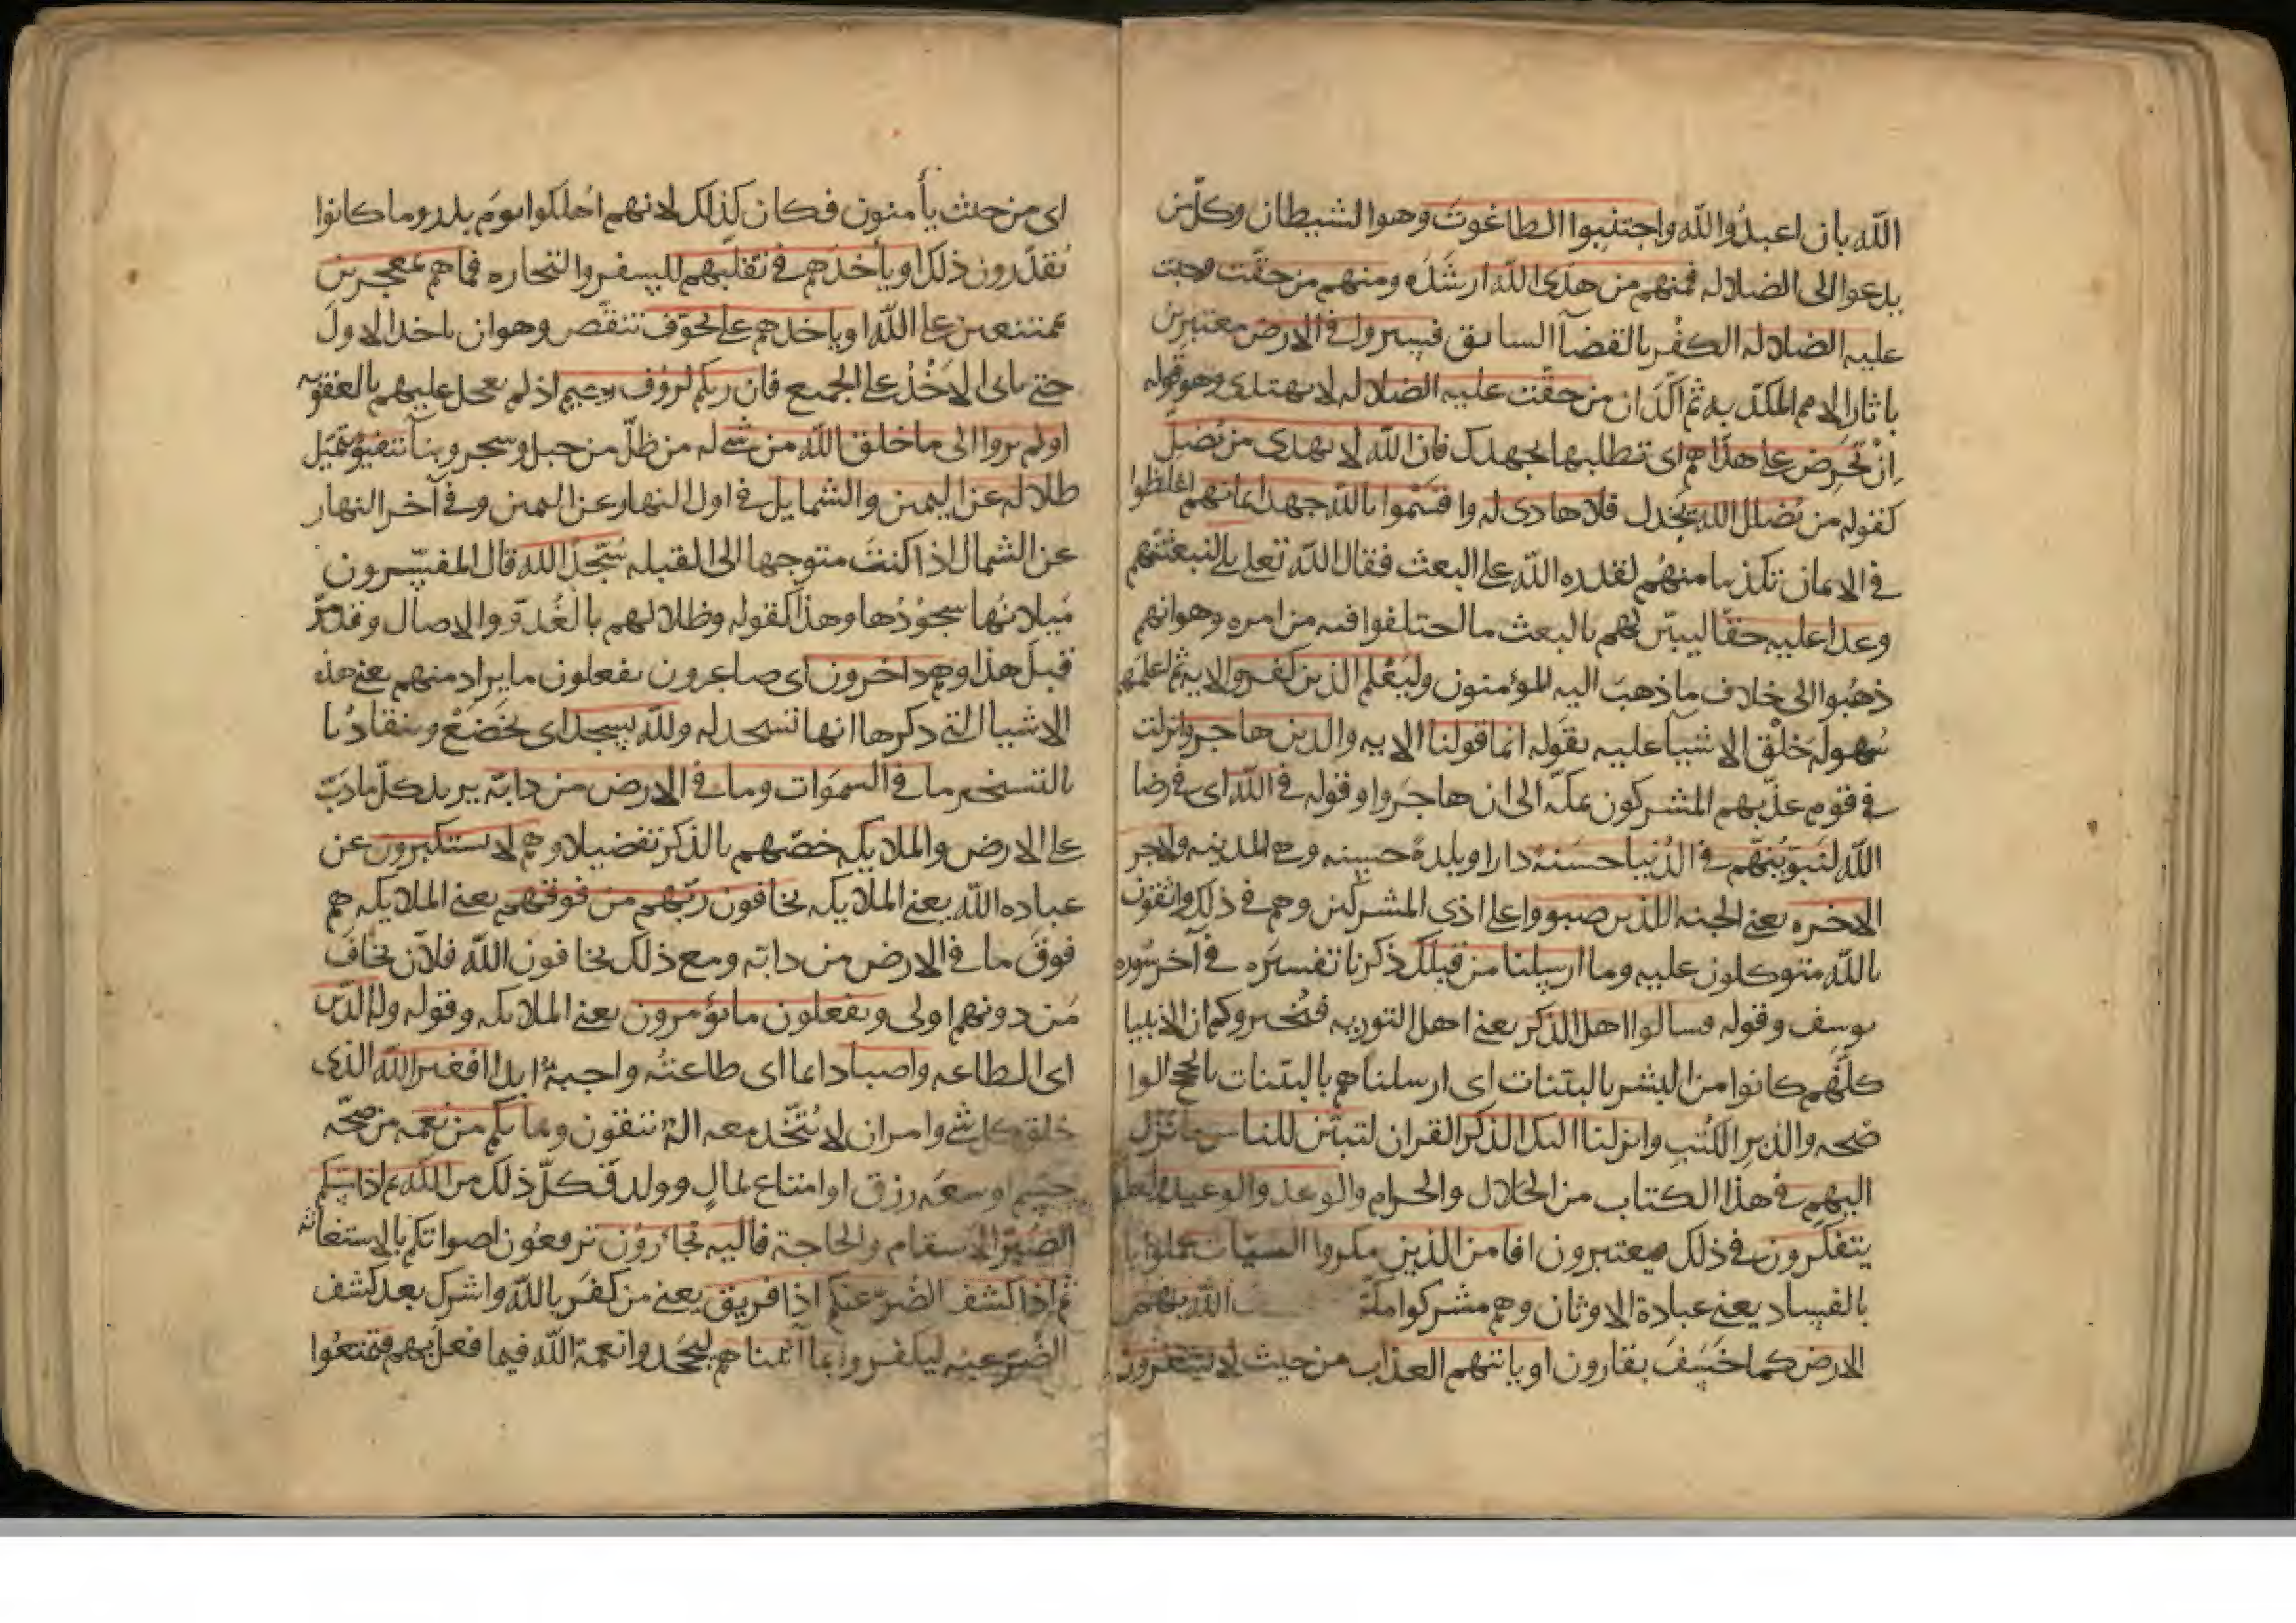 الله بان اعبدُوا الله واجتنِبوا الطاغوتَ وهوا الشيطان وكل من
يدعوا الى الضلاله فمنهم من هدَى الله ارشدَه ومنهم من حقّت وجبت
عليه الضلاله الكفْر بالقضآ السابق فسيروا فى الارض معتبرين
باثار الامم المكذّبه ثم اكّد ان من حقّت عليه الضلاله لا يهتدى وهو قوله
اِنْ تحرِض على هذَا هم اى تطلبها بجهدك فان الله لا يهدى من يُضلّ
كقوله من يُضلل الله يخذل فلا هادى له واقسَمُوا بالله جهد ايمانهم اغلظوا
فى الايمان تكذيبا منهُم لقدره الله على البعث فقال الله تعلى بلى ليبعثنّهم
وعدا عليه حقّا ليبيّن لهم بالبعث ما اختلفوا فيه من امره وهو انهم
ذهبُوا الى خلاف ما ذهبَ اليه المؤمنون وليَعْلم الذين كفروا الايه ثم اعلمهم
سُهولة خلْق الاشيآ عليه بقَوله انما قولنا الايه والذين هاجروا نزلت
فى قوم عذّبهم المشركون بمكّه الى ان هاجَروا وقوله فى الله اى فى رضا
الله لنبوّئنّهم فى الدُنيا حسَنهً دارا وبلدةً حسنه وهى المدينه ولاجر
الاخره يعنى الجنه الذين صبروا على اذى المشركين وهم فى ذلك واثقون
بالله متوكلون عليه وما ارسلنا من قبلك ذكرنا تفسيَره فى آخر سُوره
يوسف وقوله فسالوا اهل الذكر يعنى اهل التوريه فتُخبروكم ان الانبيا
كلّهم كانوا من البشر بالبيّنات اى ارسلناهم بالبيّنات بالحجج الوا
ضحه والذبر الكُتب وانزلنا اليك الذكر القران لتبيّن للناس ما نزل
اليهم فى هذا الكتاب من الحلال والحرام والوعد والوعيد ولعلهم
يتفكّرون فى ذلك فيعتبرون افامن الذين مكروا السيّات عملوا با
بالفساد يعنى عبادة الاوثان وهم مشركوا مكّة الله بهم
الارض كما خَسَفَ بقارون او ياتيهم العذاب من حيث لا يشعرون
اى من حيث يأمنون فكان كذلك لانهم اهلكوا يومَ بدر وما كانوا
يُقدّرون ذلك او ياخذهم فى تقلّبهم للسفر والتجاره فما هم بمعجزين
بممتنعين على الله او ياخذهم على تخوّف تنقّص وهو ان ياخذ الاولَ
حتى ياتى الاخْذُ على الجميع فان ربكم لرؤف رحيم اذ لم يعجل عليهم بالعقوبه
اولم يروا الى ما خلق الله من شى له من ظلّ من جبل وشجر وبنآ تتفيؤ تميّل
ظلاله عن اليمين والشمايل فى اول النهار عن اليمين وفى آخر النهار
عن الشمال اذا كنت متوجها الى القبله سُجّدًا لله قال المفسّرون
مَيلانُها سجُودُها وهذا كقوله وظلالهم بالغُدوّ والاصال وقد مرّ
قبل هذا وهم داخرون اى صاغرون يفعلون ما يراد منهم يعنى هذه
الاشيا التى ذكرها انها تسجد له ولله يسجد اى يخضعْ وينقادُ با
بالتسخير ما فى السمَوات وما فى الارض من دابّه يريد كلّ ما دبّ
على الارض والملايكه خصّهم بالذكر تفضيلا وهم لا يستكبرون عن
عباده الله يعنى الملايكه يخافون ربّهم من فوقهم يعنى الملايكه هم
فوقَ ما فى الارض من دابّه ومع ذلك يخافون الله فلان يخافَ
مَن دونهم اولى ويفعلون ما يؤمرون يعنى الملايكه وقوله وله الدين
اى الطاعه واصبا دايما اى طاعتُه واجبةٌ ابدا افغير الله الذى
خلق كل شى وامر ان لا يُتّخذ معه الهٌ تتقون وما بكم من نعمه من صحّه
جسم او سعَه رزق او امتاع بمالٍ وولد فكلّ ذلك من الله ثم اذا مسّكم
الضُرّ الاسقام والحاجة فاليه تجأرُون ترفعُون اصواتكم بالاستغاثه
ثم اذا كشف الضُرّ عنكم اذا فريق يعنى من كفَر بالله واشرك بعد كشف
الضُرّ عنه ليكفروا بما آتيناهم ليجحَدوا نعمة الله فيما فعل بهم فتمتعُوا